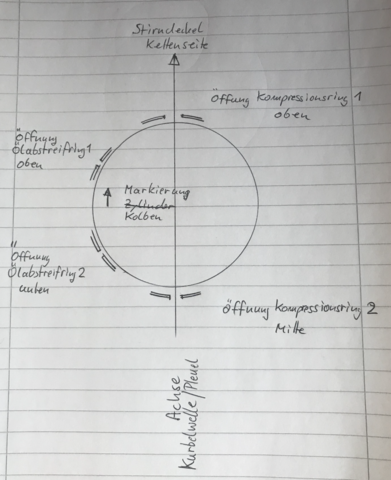 Stirndeckel
Kettenseite
Öffung Kompressionsring 1
oben
Öffnung
Ölabstreifring 1
oben
Markierung
Zylinder
Kolben
Öffnung
Ölabstreifring 2
unten
Öffnung Kompressionsring 2
Mitte
Achse
Kurbelwelle/Pleuel